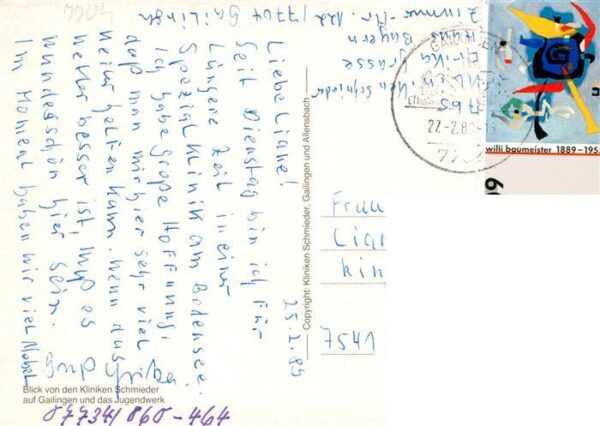 25.2.89
Liebe Liane!
Seit Dienstag bin ich für
längere Zeit in einer
Spezialklinik am Bodensee.
Ich habe große Hoffnung,
daß man mir hier sehr viel
weiter helfen kann. Wenn das
Wetter besser ist, muß es
wunderschön hier sein.
Im Moment haben wir viel Nebel.
Gruß
Blick von den Kliniken Schmieder
auf Gailingen und das Jugendwerk
07734/860-464
Copyright: Kliniken Schmieder, Gailingen und Allensbach
Kliniken Schmieder
Haus Bayern
Zimmer-Nr. 122 / 7704 Gailingen
Frau
Lian
7541
GAILINGEN
27.-2.89
7704
willi baumeister 1889-195